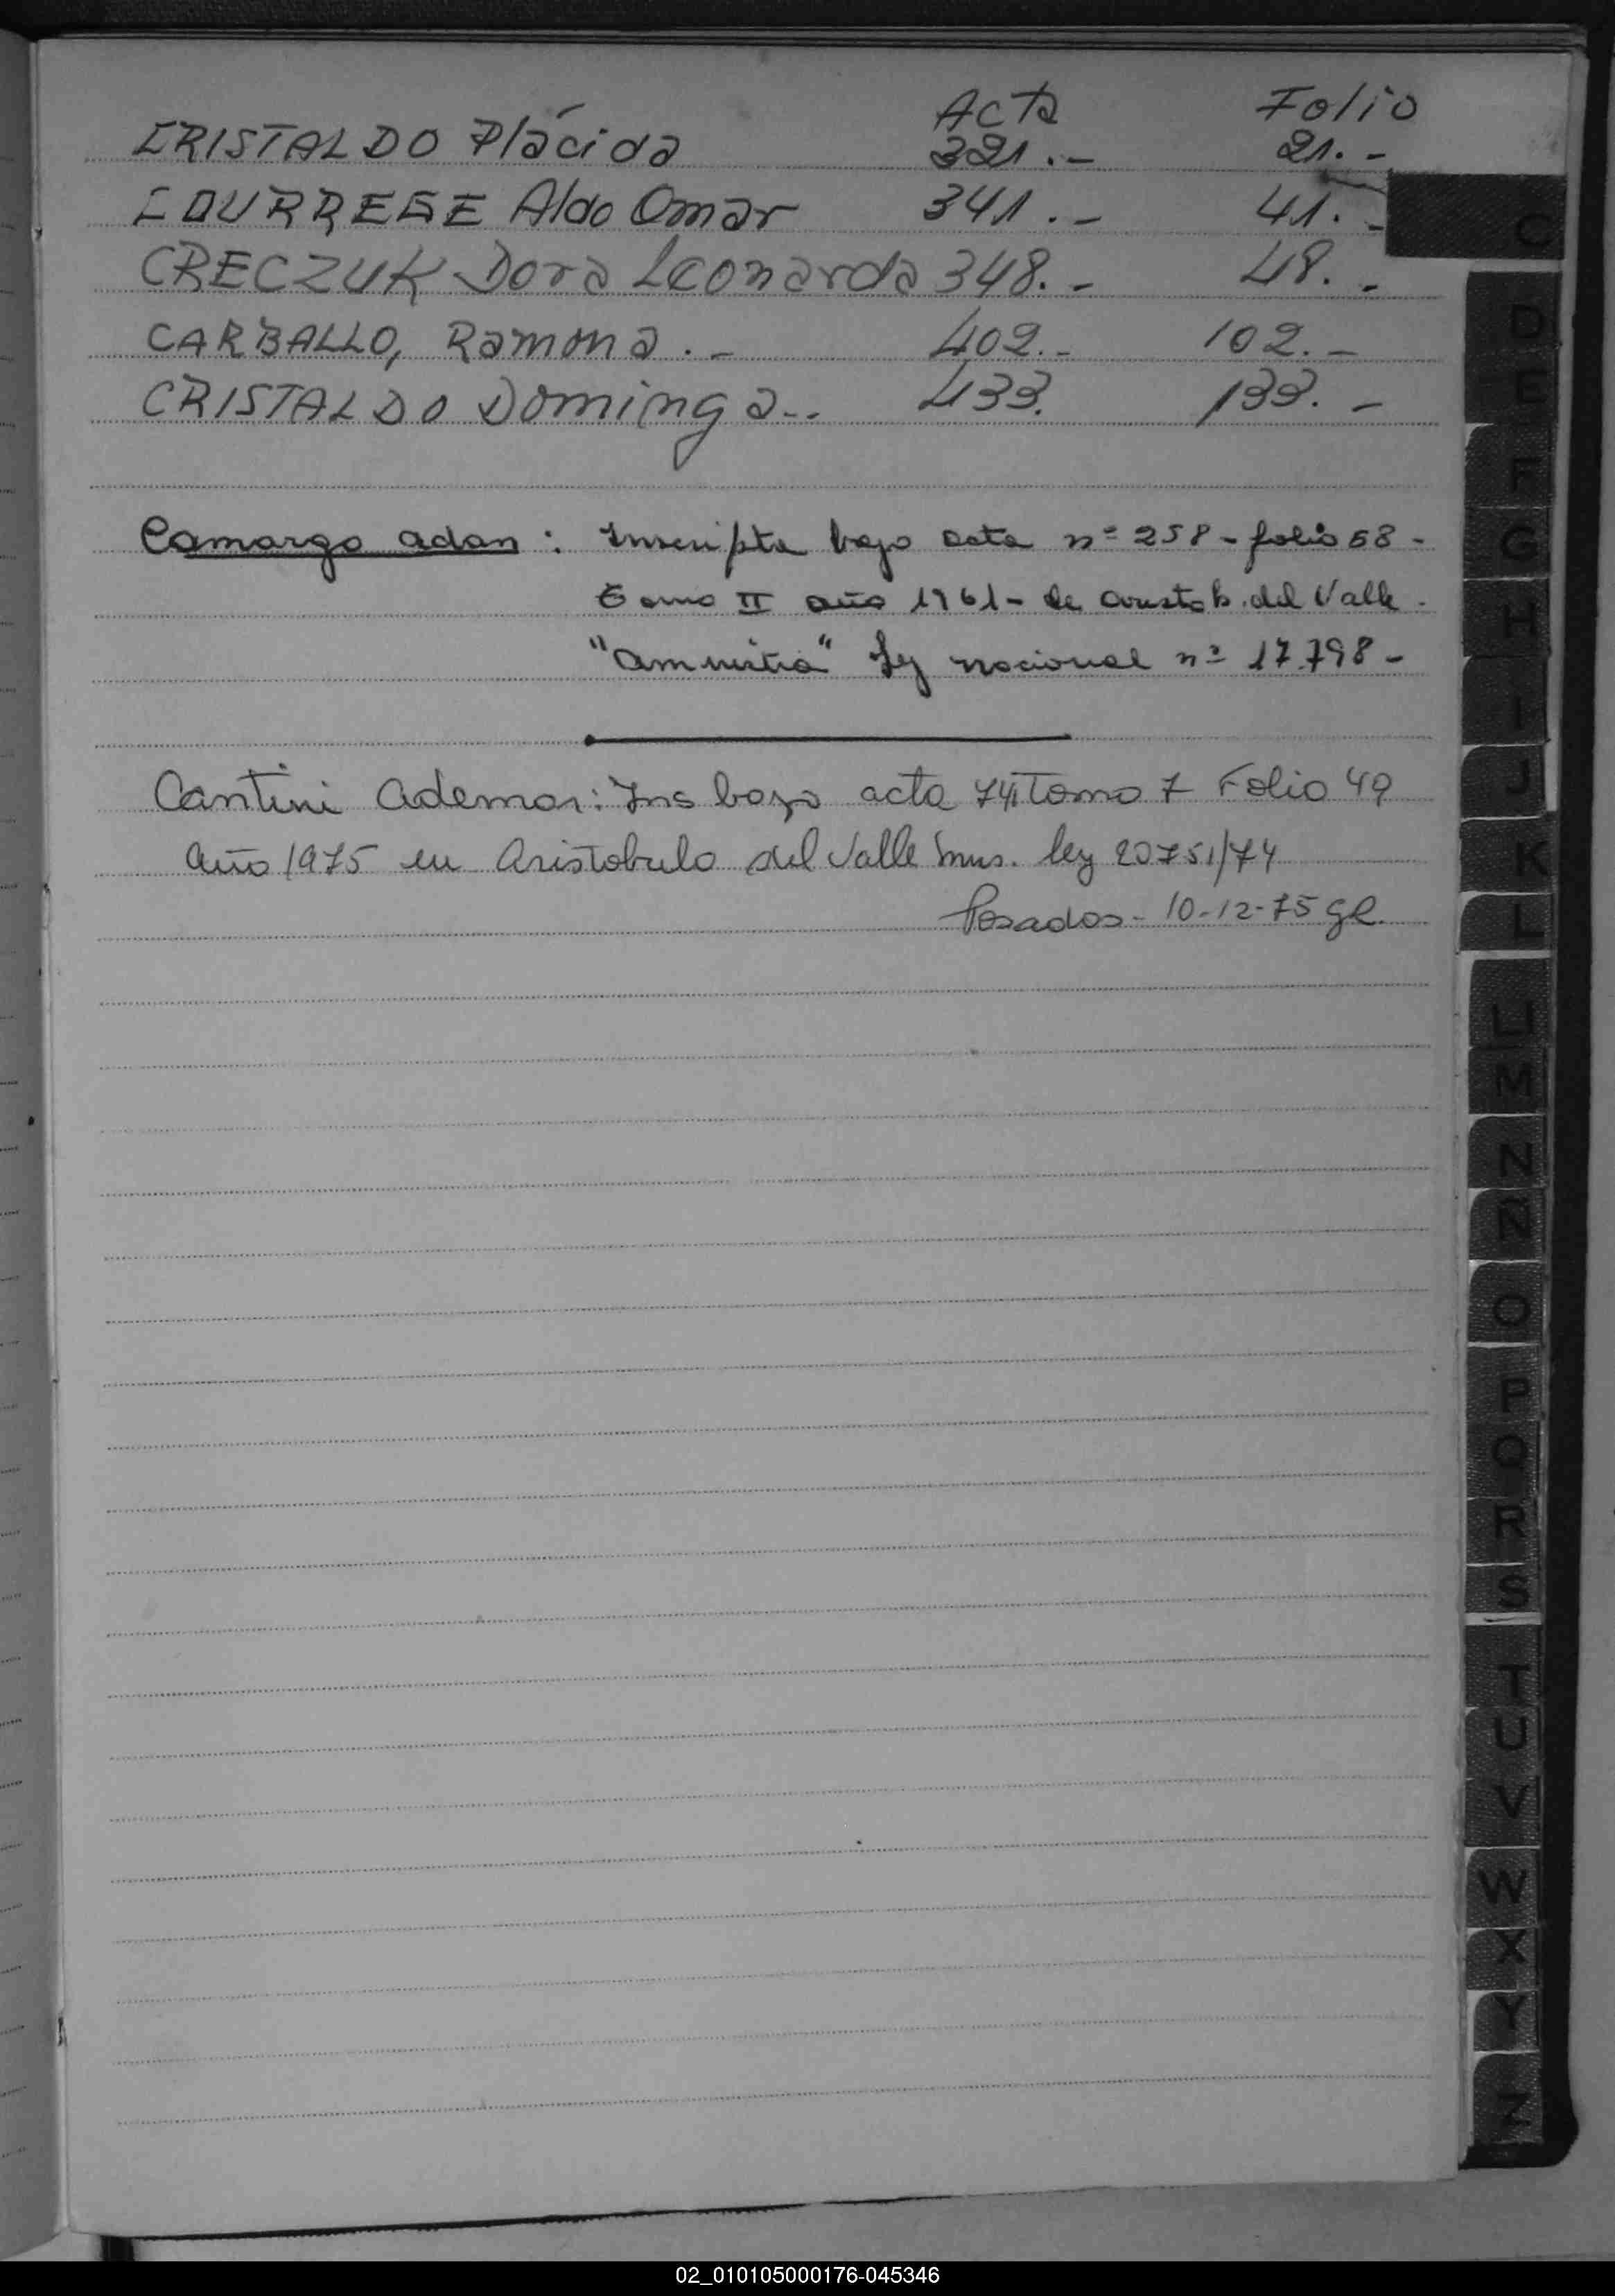 Acta Folio
CRISTALDO Plácida 321.- 21.-
COURREGE Aldo Omar 341.- 41.-
CRECZUK Dora Leonarda 348.- 48.-
CARBALLO, Ramona.- 402.- 102.-
CRISTALDO Dominga.. 433. 133.-
Camargo adan : Inscripta bajo acta nº 258 - folio 58 -
Tomo II año 1961 - de aristob. del Valle.
"amnistia" Ley nacional nº 17.798 -
Cantini Ademar: Ins bajo acta Tomo 7 Folio 49
año 1975 en Aristobulo del Valle Mns. ley 20751/74
Posadas - 10-12-75
C
D
E
F
G
H
I
J
K
L
LL
M
N
Ñ
O
P
Q
R
S
T
U
V
W
X
Y
Z
02_010105000176-045346